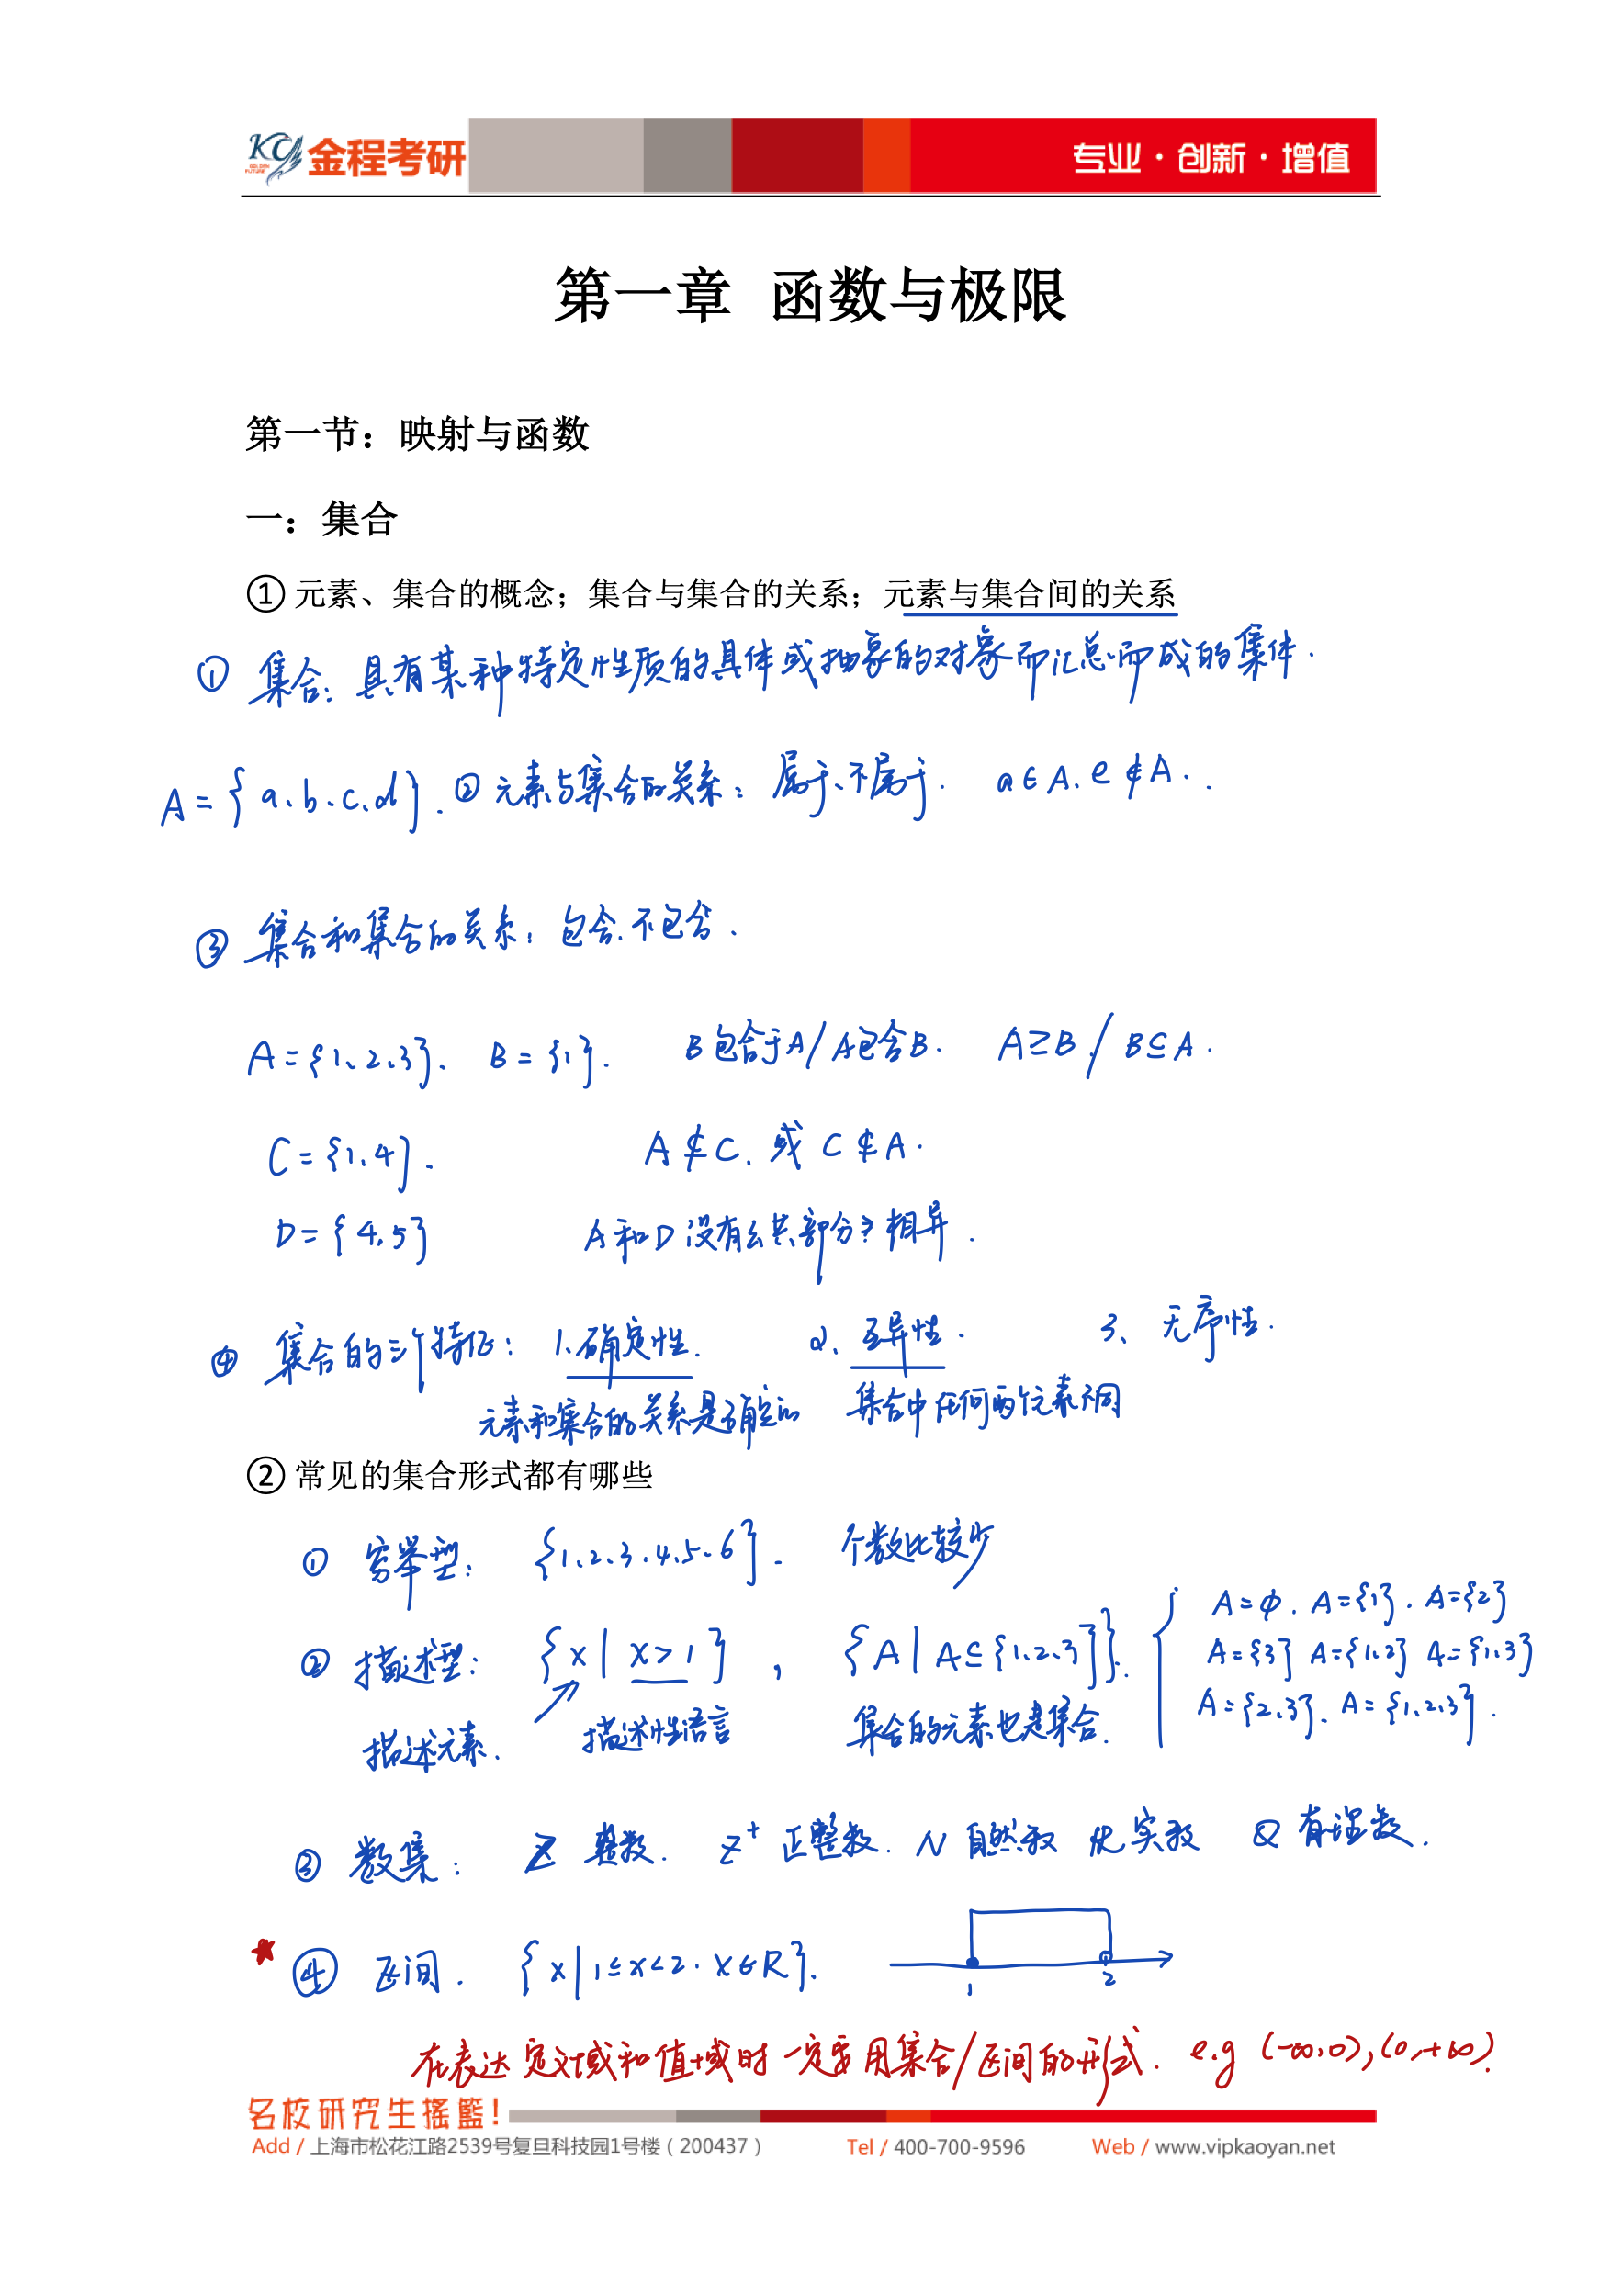 KC 金程考研
GOLDEN FUTURE
专业·创新·增值
第一章 函数与极限
第一节：映射与函数
一：集合
① 元素、集合的概念；集合与集合的关系；元素与集合间的关系
① 集合：具有某种特定性质的具体或抽象的对象而汇总而成的集体.
A={a、b、c、d}. ② 元素与集合的关系：属于、不属于. a∈A、e∉A.
③ 集合和集合的关系：包含、不包含.
A={1、2、3}、 B={1}. B包含于A/A包含B. A⊇B/B⊆A.
C={1、4}. A⊄C、或 C⊄A.
D={4、5} A和D没有公共部分⇒相异.
④ 集合的三个特征：1、确定性. 2、互异性. 3、无序性.
元素和集合的关系是确定的 集合中任何两个元素不同
② 常见的集合形式都有哪些
① 穷举型： {1、2、3、4、5、6}. 个数比较少
② 描述型： {x|x>1}， {A|A⊆{1、2、3}}. A=φ. A={1}. A={2}
A={3} A={1、2} A={1、3}
A={2、3}. A={1、2、3}.
描述元素. 描述性语言 集合的元素也是集合.
③ 数集： Z 整数. Z⁺ 正整数. N 自然数 R 实数 Q 有理数.
④ 区间. {x|1≤x<2. x∈R}.
1 2
在表达定义域和值域时一定要用集合/区间的形式. e.g (-∞,0),(0,+∞).
名校研究生摇篮！
Add / 上海市松花江路2539号复旦科技园1号楼（200437） Tel / 400-700-9596 Web / www.vipkaoyan.net